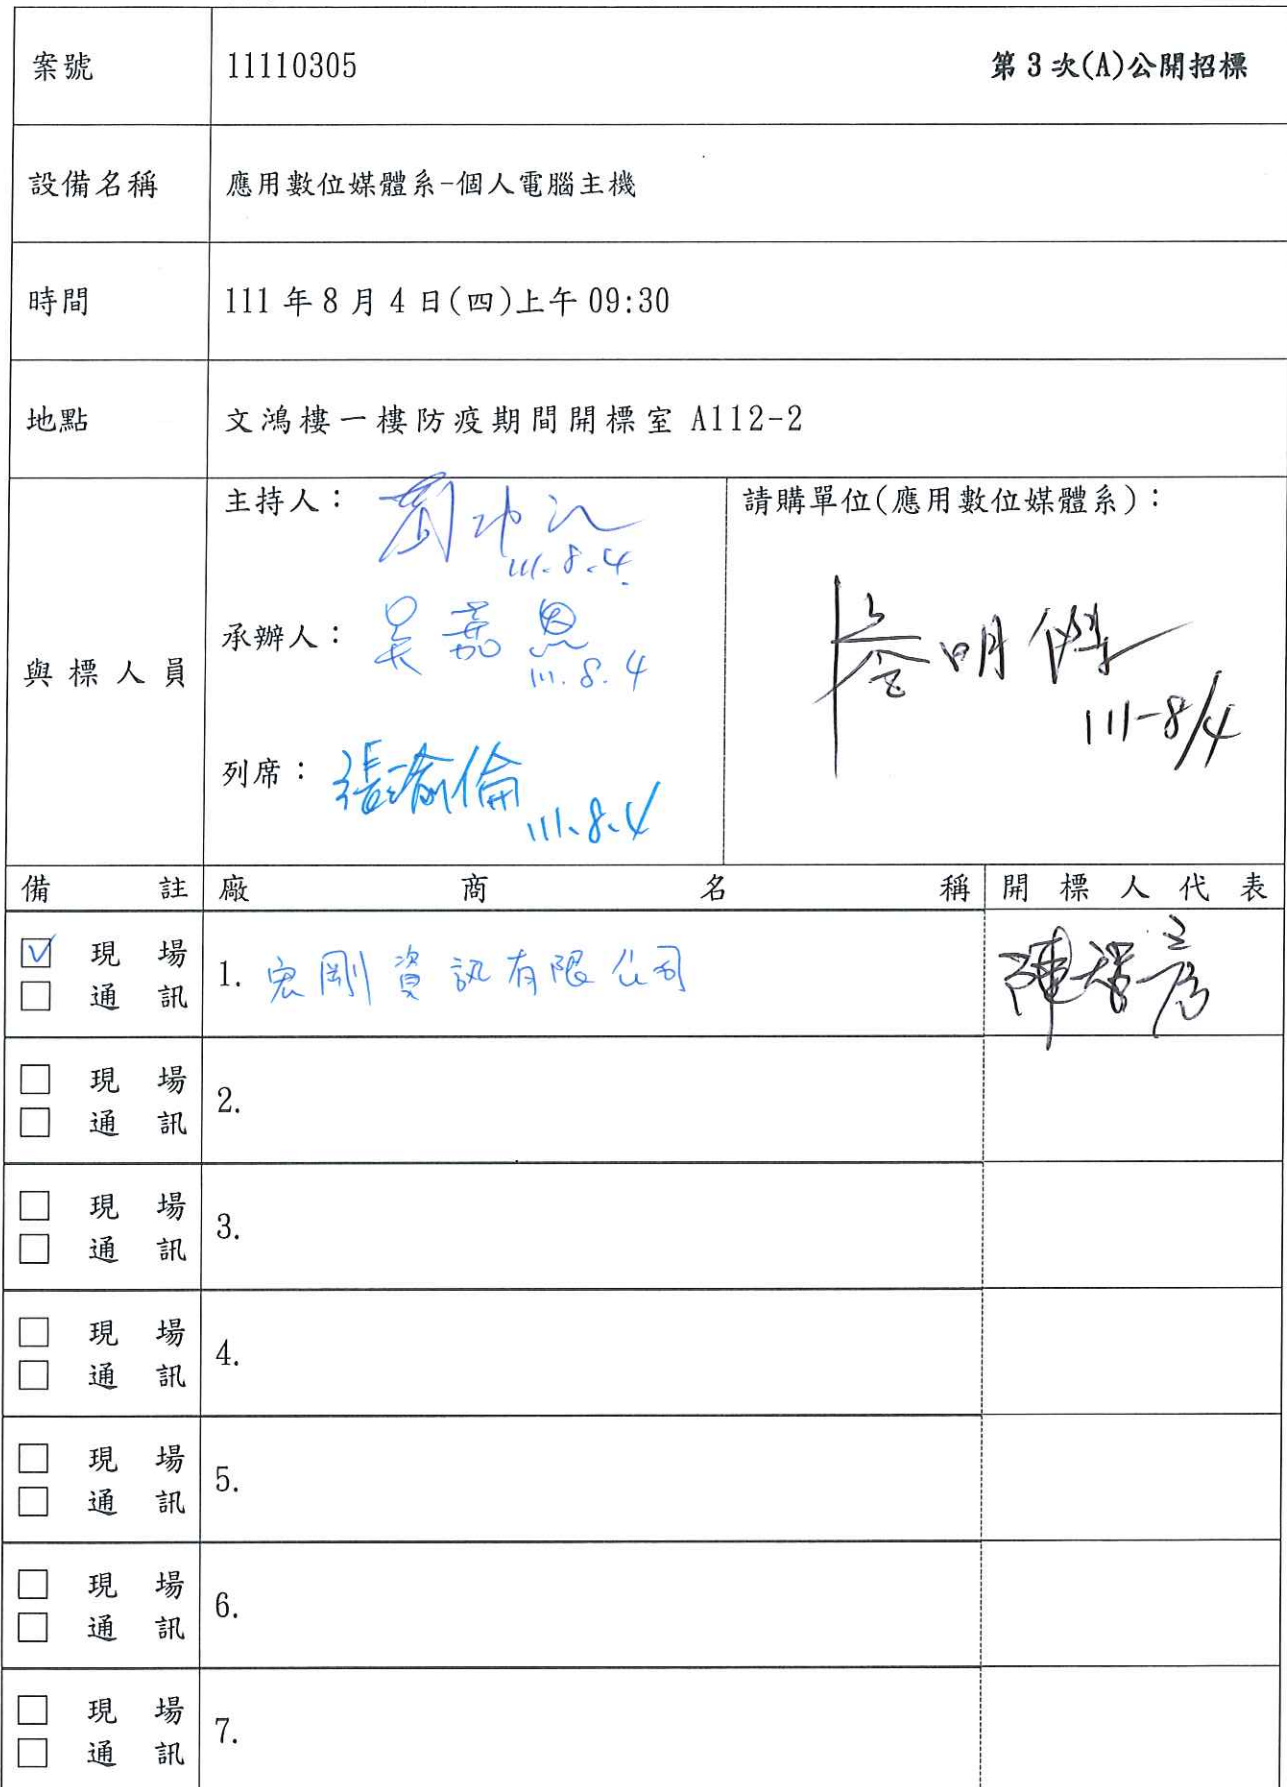 案號 11110305 第3次(A)公開招標
設備名稱 應用數位媒體系-個人電腦主機
時間 111年8月4日(四)上午09:30
地點 文鴻樓一樓防疫期間開標室 A112-2
與標人員
主持人：
111.8.4
承辦人：吳嘉恩
111.8.4
列席：張瑜倫
111.8.4
請購單位(應用數位媒體系)：
詹明傑
111-8/4
備註 廠商名稱 開標人代表
☑ 現場
□ 通訊
1. 宏剛資訊有限公司
陳 彥
□ 現場
□ 通訊
2.
□ 現場
□ 通訊
3.
□ 現場
□ 通訊
4.
□ 現場
□ 通訊
5.
□ 現場
□ 通訊
6.
□ 現場
□ 通訊
7.